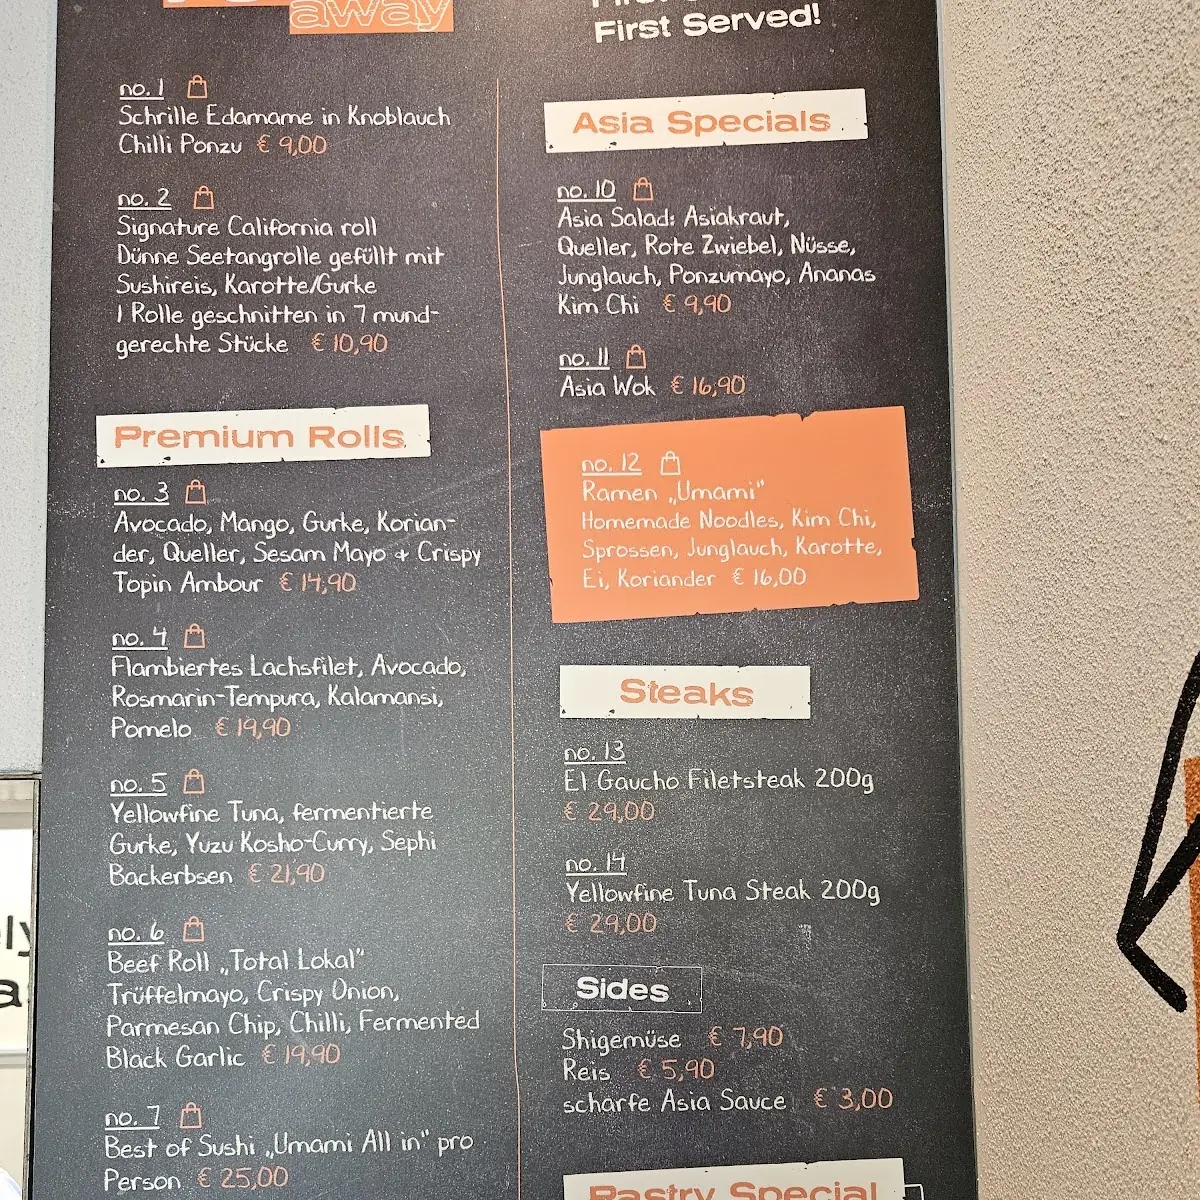 away
no. 1
Schrille Edamame in Knoblauch
Chilli Ponzu € 9,00
no. 2
Signature California roll
Dünne Seetangrolle gefüllt mit
Sushireis, Karotte/Gurke
1 Rolle geschnitten in 7 mund-
gerechte Stücke € 10,90
Premium Rolls
no. 3
Avocado, Mango, Gurke, Korian-
der, Queller, Sesam Mayo + Crispy
Topin Ambour € 14,90
no. 4
Flambiertes Lachsfilet, Avocado,
Rosmarin-Tempura, Kalamansi,
Pomelo € 19,90
no. 5
Yellowfine Tuna, fermentierte
Gurke, Yuzu Kosho-Curry, Sephi
Backerbsen € 21,90
no. 6
Beef Roll „Total Lokal"
Trüffelmayo, Crispy Onion,
Parmesan Chip, Chilli, Fermented
Black Garlic € 19,90
no. 7
Best of Sushi „Umami All in" pro
Person € 25,00
First Served!
Asia Specials
no. 10
Asia Salad: Asiakraut,
Queller, Rote Zwiebel, Nüsse,
Junglauch, Ponzumayo, Ananas
Kim Chi € 9,90
no. 11
Asia Wok € 16,90
no. 12
Ramen „Umami"
Homemade Noodles, Kim Chi,
Sprossen, Junglauch, Karotte,
Ei, Koriander € 16,00
Steaks
no. 13
El Gaucho Filetsteak 200g
€ 29,00
no. 14
Yellowfine Tuna Steak 200g
€ 29,00
Sides
Shigemüse € 7,90
Reis € 5,90
scharfe Asia Sauce € 3,00
Pastry Special